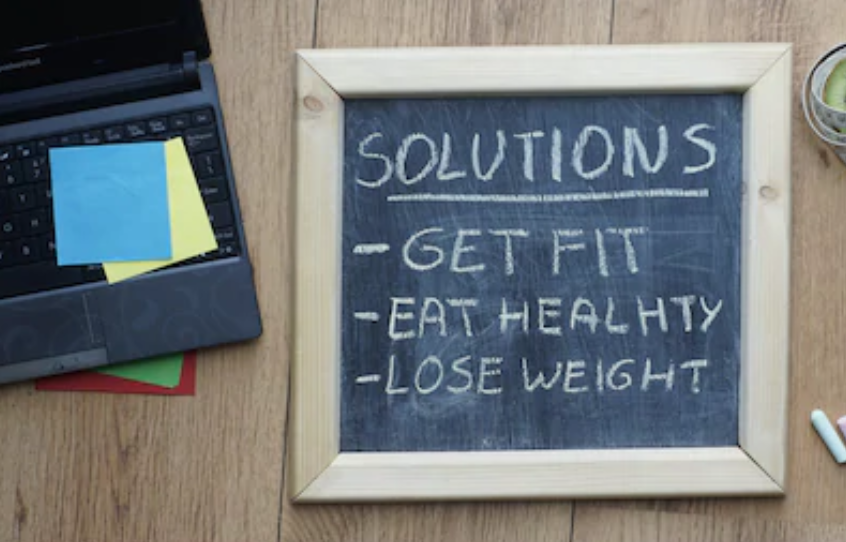 SOLUTIONS
- GET FIT
- EAT HEALHTY
- LOSE WEIGHT